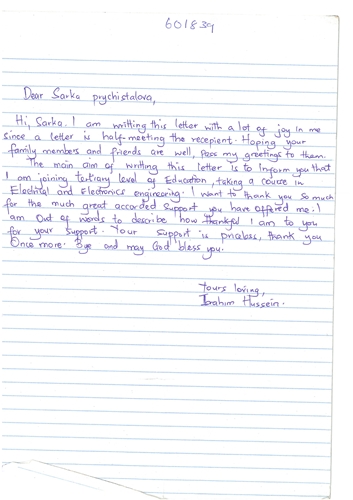 601839
Dear Sarka prychistalova,
Hi, Sarka. I am writting this letter with a lot of joy in me
since a letter is half meeting the recepient. Hoping your
family members and friends are well, pass my greetings to them.
The main aim of writting this letter is to inform you that
I am joining tertiary level of Education, taking a course in
Electrical and Electronics engineering. I want to thank you so much
for the much great accorded support you have offered me. I
am out of words to describe how thankful I am to you
for your support. Your support is priceless, thank you
Once more. Bye and may God bless you.
Yours loving,
Ibrahim Hussein.